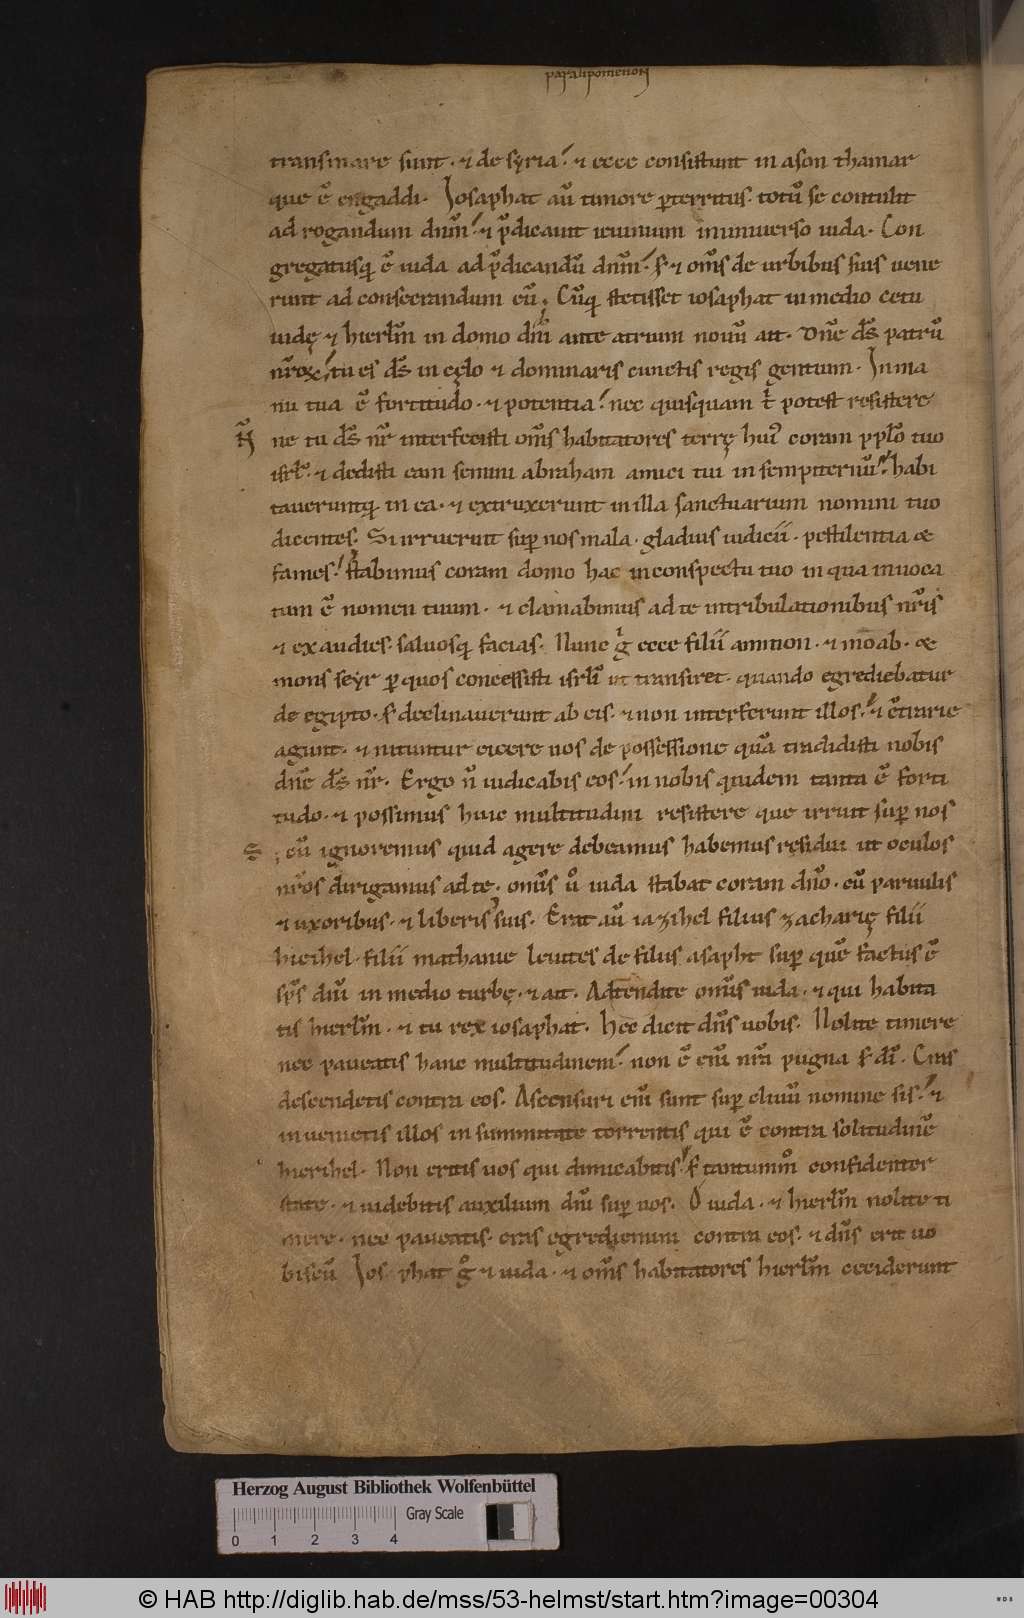 paralipomenon
transmare sunt · ⁊ de syria · ⁊ ecce consistunt in ason thamar
que ē engaddi · Iosaphat aū timore ꝑterritus · totū se contulit
ad rogandum dn̄m · ⁊ p̄dicauit ieiunium in uniuerso iuda · Con
gregatusq; ē iuda ad p̄dicandū dn̄m · s; ⁊ om̄s de urbibus suis uene
runt ad consecrandum eū; Cūq; stetisset iosaphat in medio cetu
iudę ⁊ hierl̄m in domo dn̄i ante atrium nouū ait · Dn̄e ds̄ patrū
nr̄oꝝ · tu es ds̄ in cęlo ⁊ dominaris cunctis regis gentium · In ma
nu tua ē fortitudo · ⁊ potentia · nec quisquam t̄ potest resistere
N̄ ne tu ds̄ nr̄ interfecisti om̄s habitatores terrę hui' coram ppl̄o tuo
isrl̄ · ⁊ dedisti eam semini abraham amici tui in sempiternū · habi
taueruntq; in ea · ⁊ extruxerunt in illa sanctuarium nomini tuo
dicentes · Si irruerint suꝑ nos mala · gladius iudicii · pestilentia &
fames · stabimus coram domo hac in conspectu tuo in qua inuoca
tum ē nomen tuum · ⁊ clamabimus ad te in tribulationibus nr̄is
⁊ exaudies · saluosq; facias · Nunc g̊ ecce filii ammon · ⁊ moab · &
mons seyr ꝑ quos concessisti isrl̄i ut transiret · quando egrediebatur
de egipto · s; declinauerunt ab eis · ⁊ non interferunt illos · ⁊ c̄trarie
agunt · ⁊ nituntur eicere nos de possessione quā tradidisti nobis
dn̄e ds̄ nr̄ · Ergo n̄ iudicabis eos · in nobis quidem tanta ē forti
tudo · ⁊ possimus huic multitudini resistere que irruit suꝑ nos
S; cū ignoremus quid agere debeamus habemus residui ut oculos
nr̄os dirigamus ad te · omīs u̅ iuda stabat coram dn̄o · cū paruulis
⁊ uxoribus · ⁊ liberis suis · Erat aū iazihel filius zacharię filii
hieihel · filii mathanie leuites de filiis asapht suꝑ quē factus ē
sp̄s dn̄i in medio turbę · ⁊ ait · Adtendite omīs iuda · ⁊ qui habita
tis hierl̄m · ⁊ tu rex iosaphat · Hec dicit dn̄s uobis · Nolite timere
nec paueatis hanc multitudinem · non ē enī nr̄a pugna s; dī · Cras
descendetis contra eos · Ascensuri enī sunt suꝑ cliuū nomine sis · ⁊
inuenietis illos in summitate torrentis qui ē contra solitudinē
hierihel · Non eritis uos qui dimicabitis · s; tantummo confidenter
state · ⁊ uidebitis auxilium dn̄i suꝑ uos · O iuda · ⁊ hierl̄m nolite ti
mere · nec paueatis · cras egrediemini contra eos · ⁊ dn̄s erit uo
biscū Ios phat g̊ ⁊ iuda · ⁊ om̄s habitatores hierl̄m ceciderunt
Herzog August Bibliothek Wolfenbüttel
Gray Scale
0 1 2 3 4
© HAB http://diglib.hab.de/mss/53-helmst/start.htm?image=00304